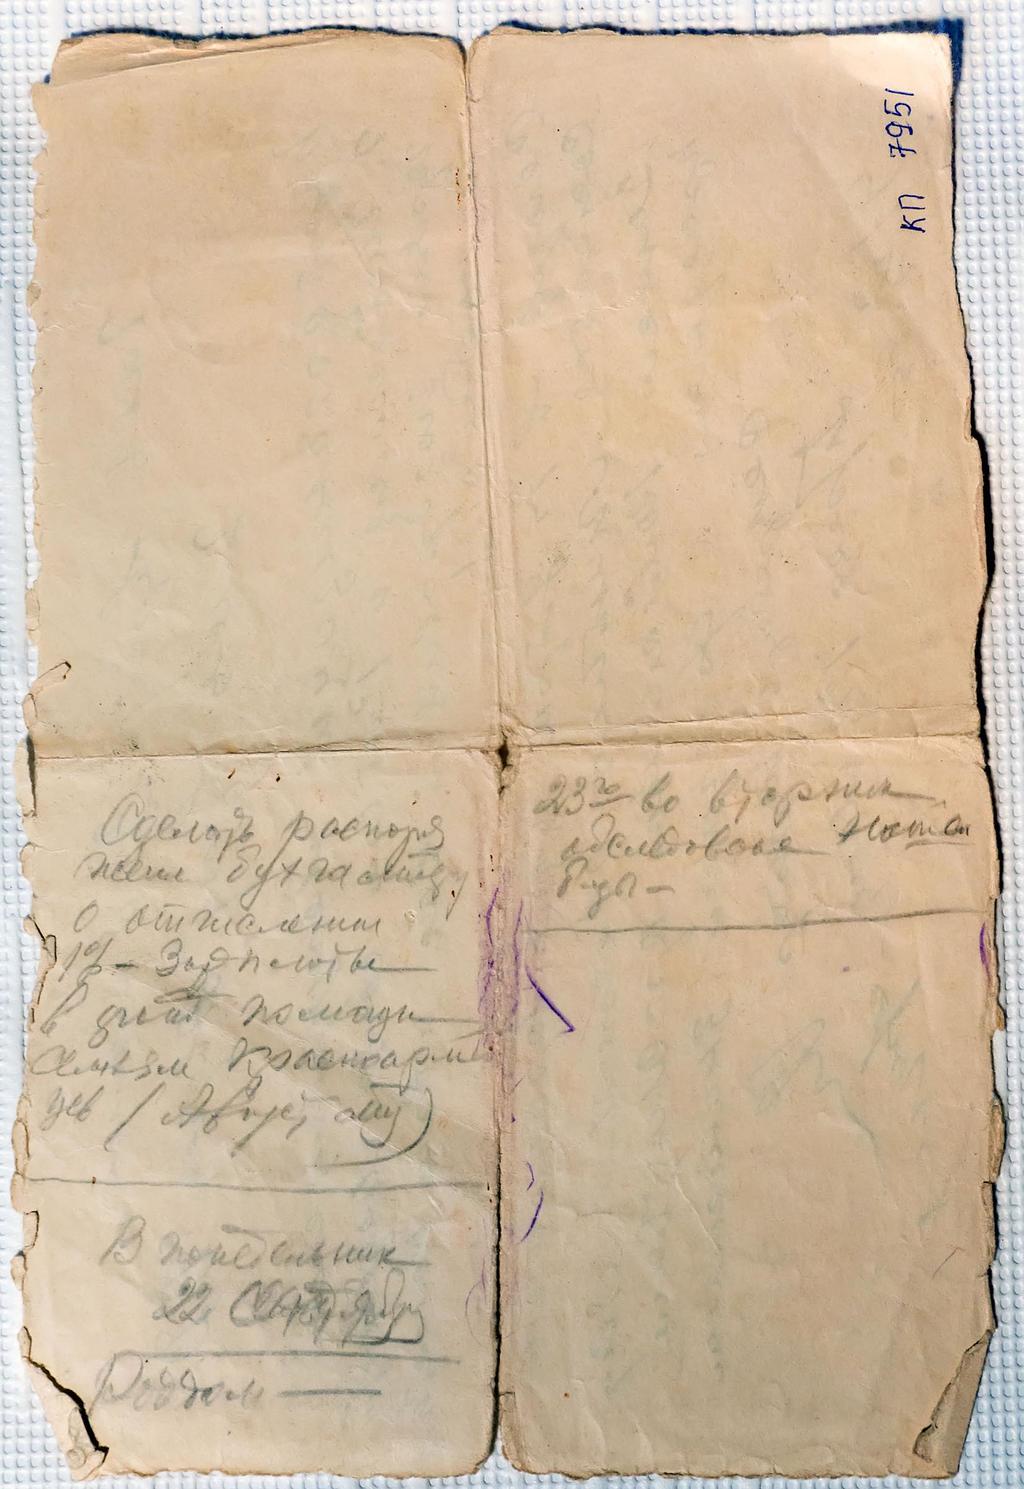 КП 7951
Сделать распоря
жение бухгалтеру
о отчислении
1% – Зарплаты
в фонд помощи
семьям Красноармей
цев (Август, )
В понедельник
22 Сентября
Роддом —
23го во вторник
обследование